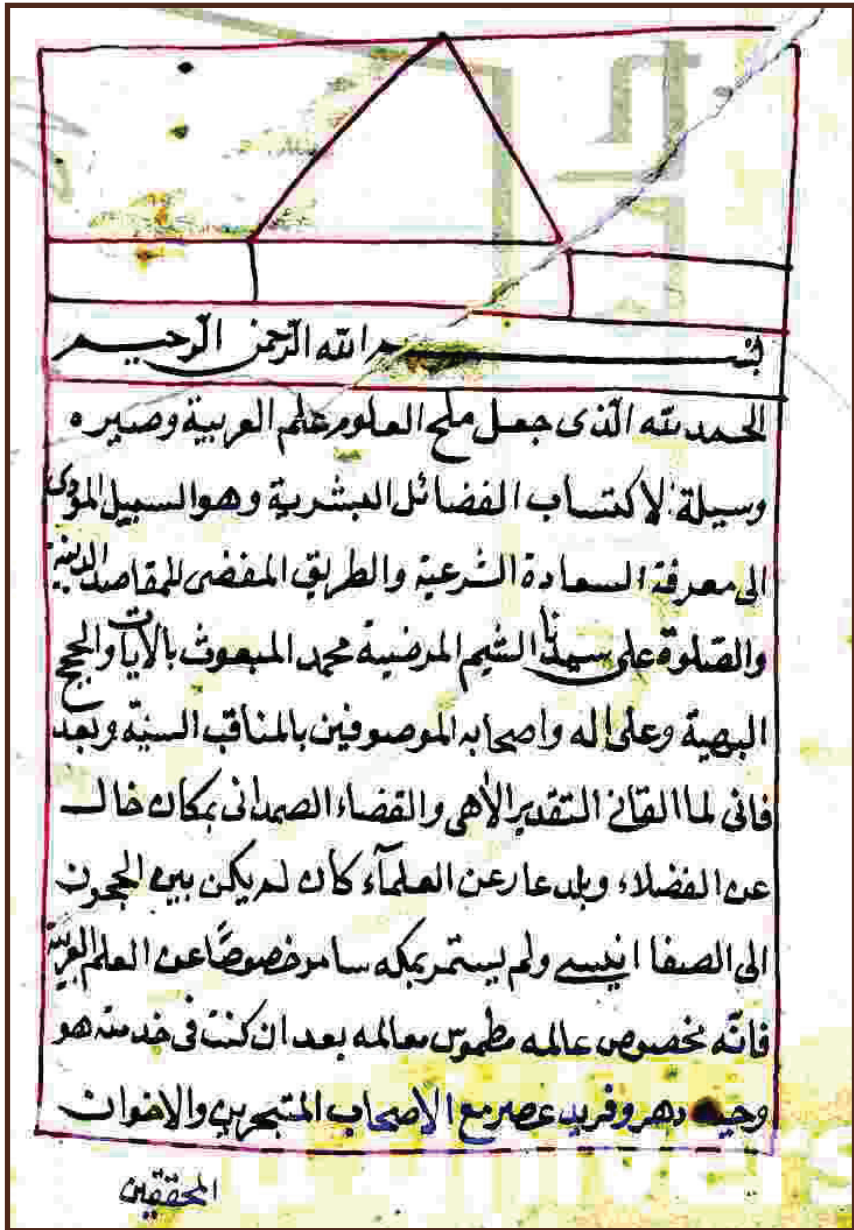 بسم الله الرحمن الرحيم
الحمد لله الذى جعل ملح العلوم علم العربية وصيره
وسيلة لاكتساب الفضائل البشرية وهو السبيل المؤدى
الى معرفة السعادة الشرعية والطريق المفضى للمقاصد الدينية
والصلوة على سيدنا الشيم المرضية محمد المبعوث بالايات والحجج
البهية وعلى اله واصحابه الموصوفين بالمناقب السنية وبعد
فانى لما القانى التقدير الالاهى والقضاء الصمدانى بمكان خال
عن الفضلاء وبلد عار عن العلمآء كأن لم يكن بين الحجون
الى الصفا انيس ولم يستمر بمكه سامر خصوصًا عن العلم العربية
فانّه مخصوص عالمه مطموس معالمه بعد ان كنت فى خدمته هو
وحيد دهر وفريد عصر مع الاصحاب المتبحرين والاخوان
المحققين